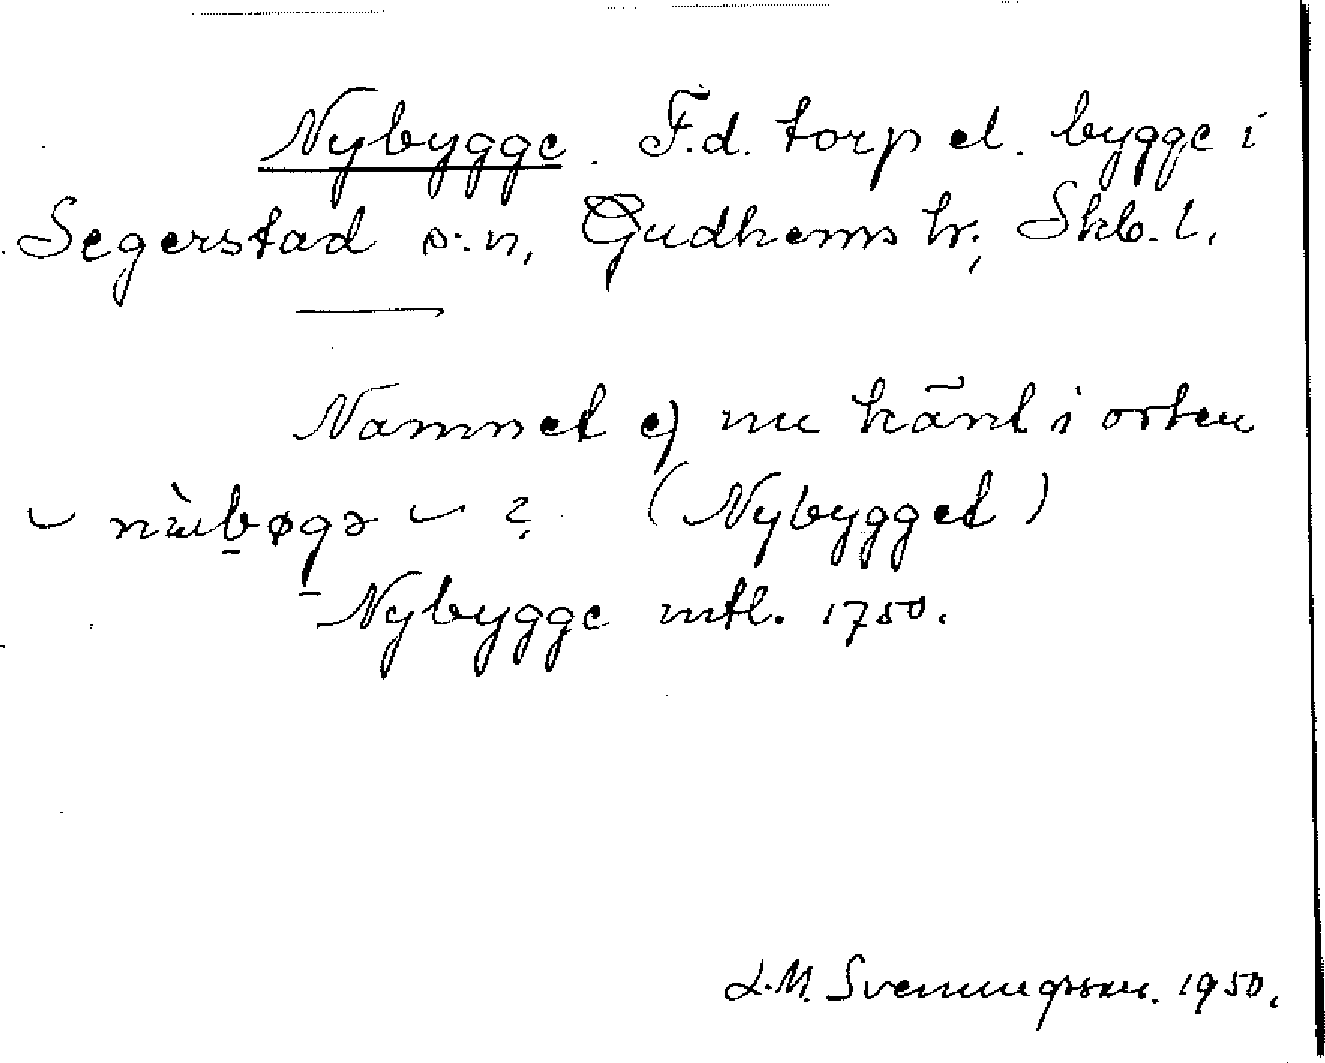 Nybygge. F.d. torp el. bygge i
Segerstad s:n, Gudhems hr; Skb. l.
Namnet ej nu känt i orten
(Nybygget)
Nybygge mtl. 1750.
L.M. Svenungsson. 1950.